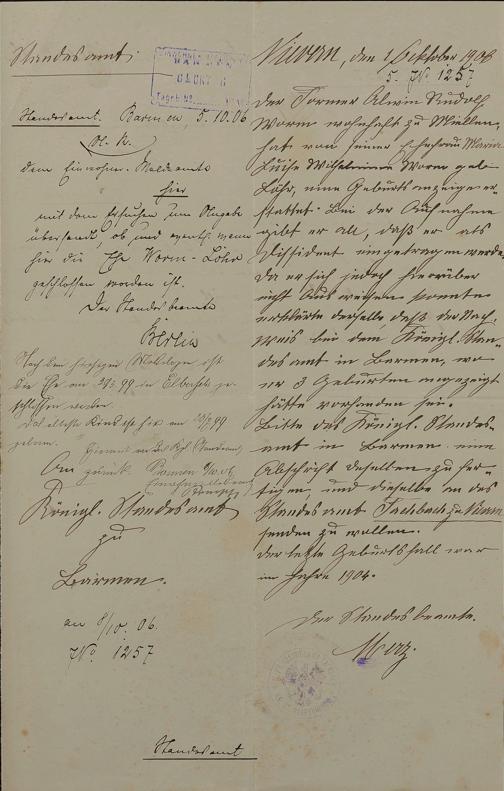 Standesamt
Standesamt. Barmen 5.10.06
dem Einwohner-Meldeamte
hier
mit dem Ersuchen um Angabe
übersandt, ob und eventl. wann
hier die Ehe Worm-Löhr
geschlossen worden ist.
Der Standesbeamte
Nach den hiesigen Meldungen ist
die Ehe am 99 in Elberfeld ge-
schlossen worden.
Das älteste Kind ist hier am 99
geboren.
zurück. Barmen 06
An
Königl. Standesamt
zu
Barmen.
an 8/10. 06.
No. 1257
Standesamt
Nievern, den 1. Oktober 1906
J. No 1257
Der Former Alwin Rudolf
Worm wohnhaft zu Miellen,
hat von seiner Ehefrau Maria
Luise Wilhelmine Worm geb.
Löhr, eine Geburtsanzeige er-
stattet. Bei der Aufnahme
gibt er an, daß er als
Dissident eingetragen werde,
da er sich jedoch hierüber
nicht ausweisen konnte
erklärte derselbe, daß der Nach-
weis bei dem Königl. Stan-
desamt in Barmen, wo
er 3 Geburten angezeigt
hätte vorhanden sei.
Bitte das Königl. Standes-
amt in Barmen eine
Abschrift deselben zu fer-
tigen, und dieselbe an das
Standesamt Fachbach zu Nievern
senden zu wollen.
Der letzte Geburtsfall war
im Jahre 1904.
Der Standesbeamte.